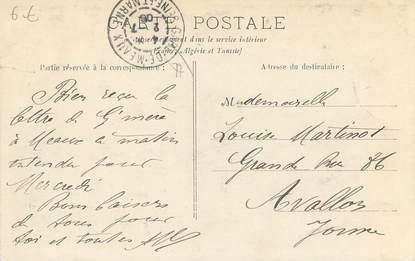 6-6
CARTE POSTALE
exclusivement dans le service intérieur
(France, Algérie et Tunisie)
Partie réservée à la correspondance
Adresse du destinataire
DE-MEAUX
SEINE-ET-MARNE
Bien reçu la
lettre de G'mère
à Meaux ce matin
entendu pour
Mercredi
Bons baisers
de tous pour
toi et toutes
Mademoiselle
Louise Martinot
Grande Rue 86
Avallon
Yonne